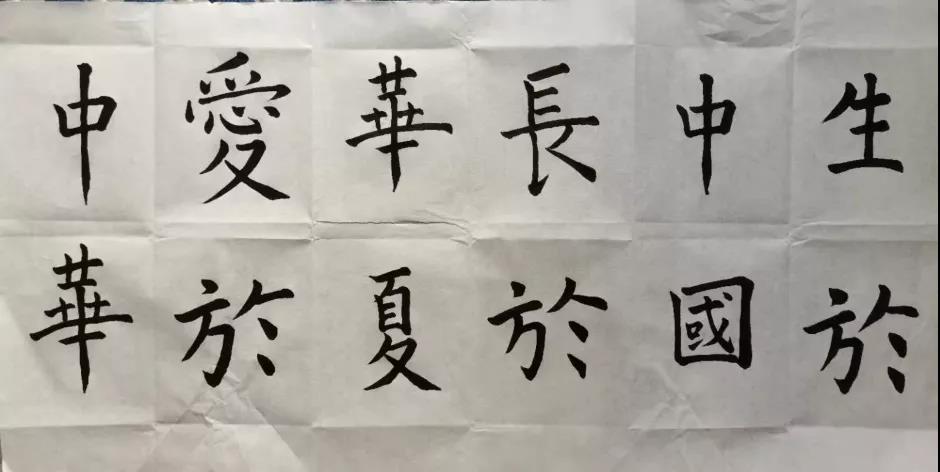 生於
中國
長於
華夏
愛於
中華